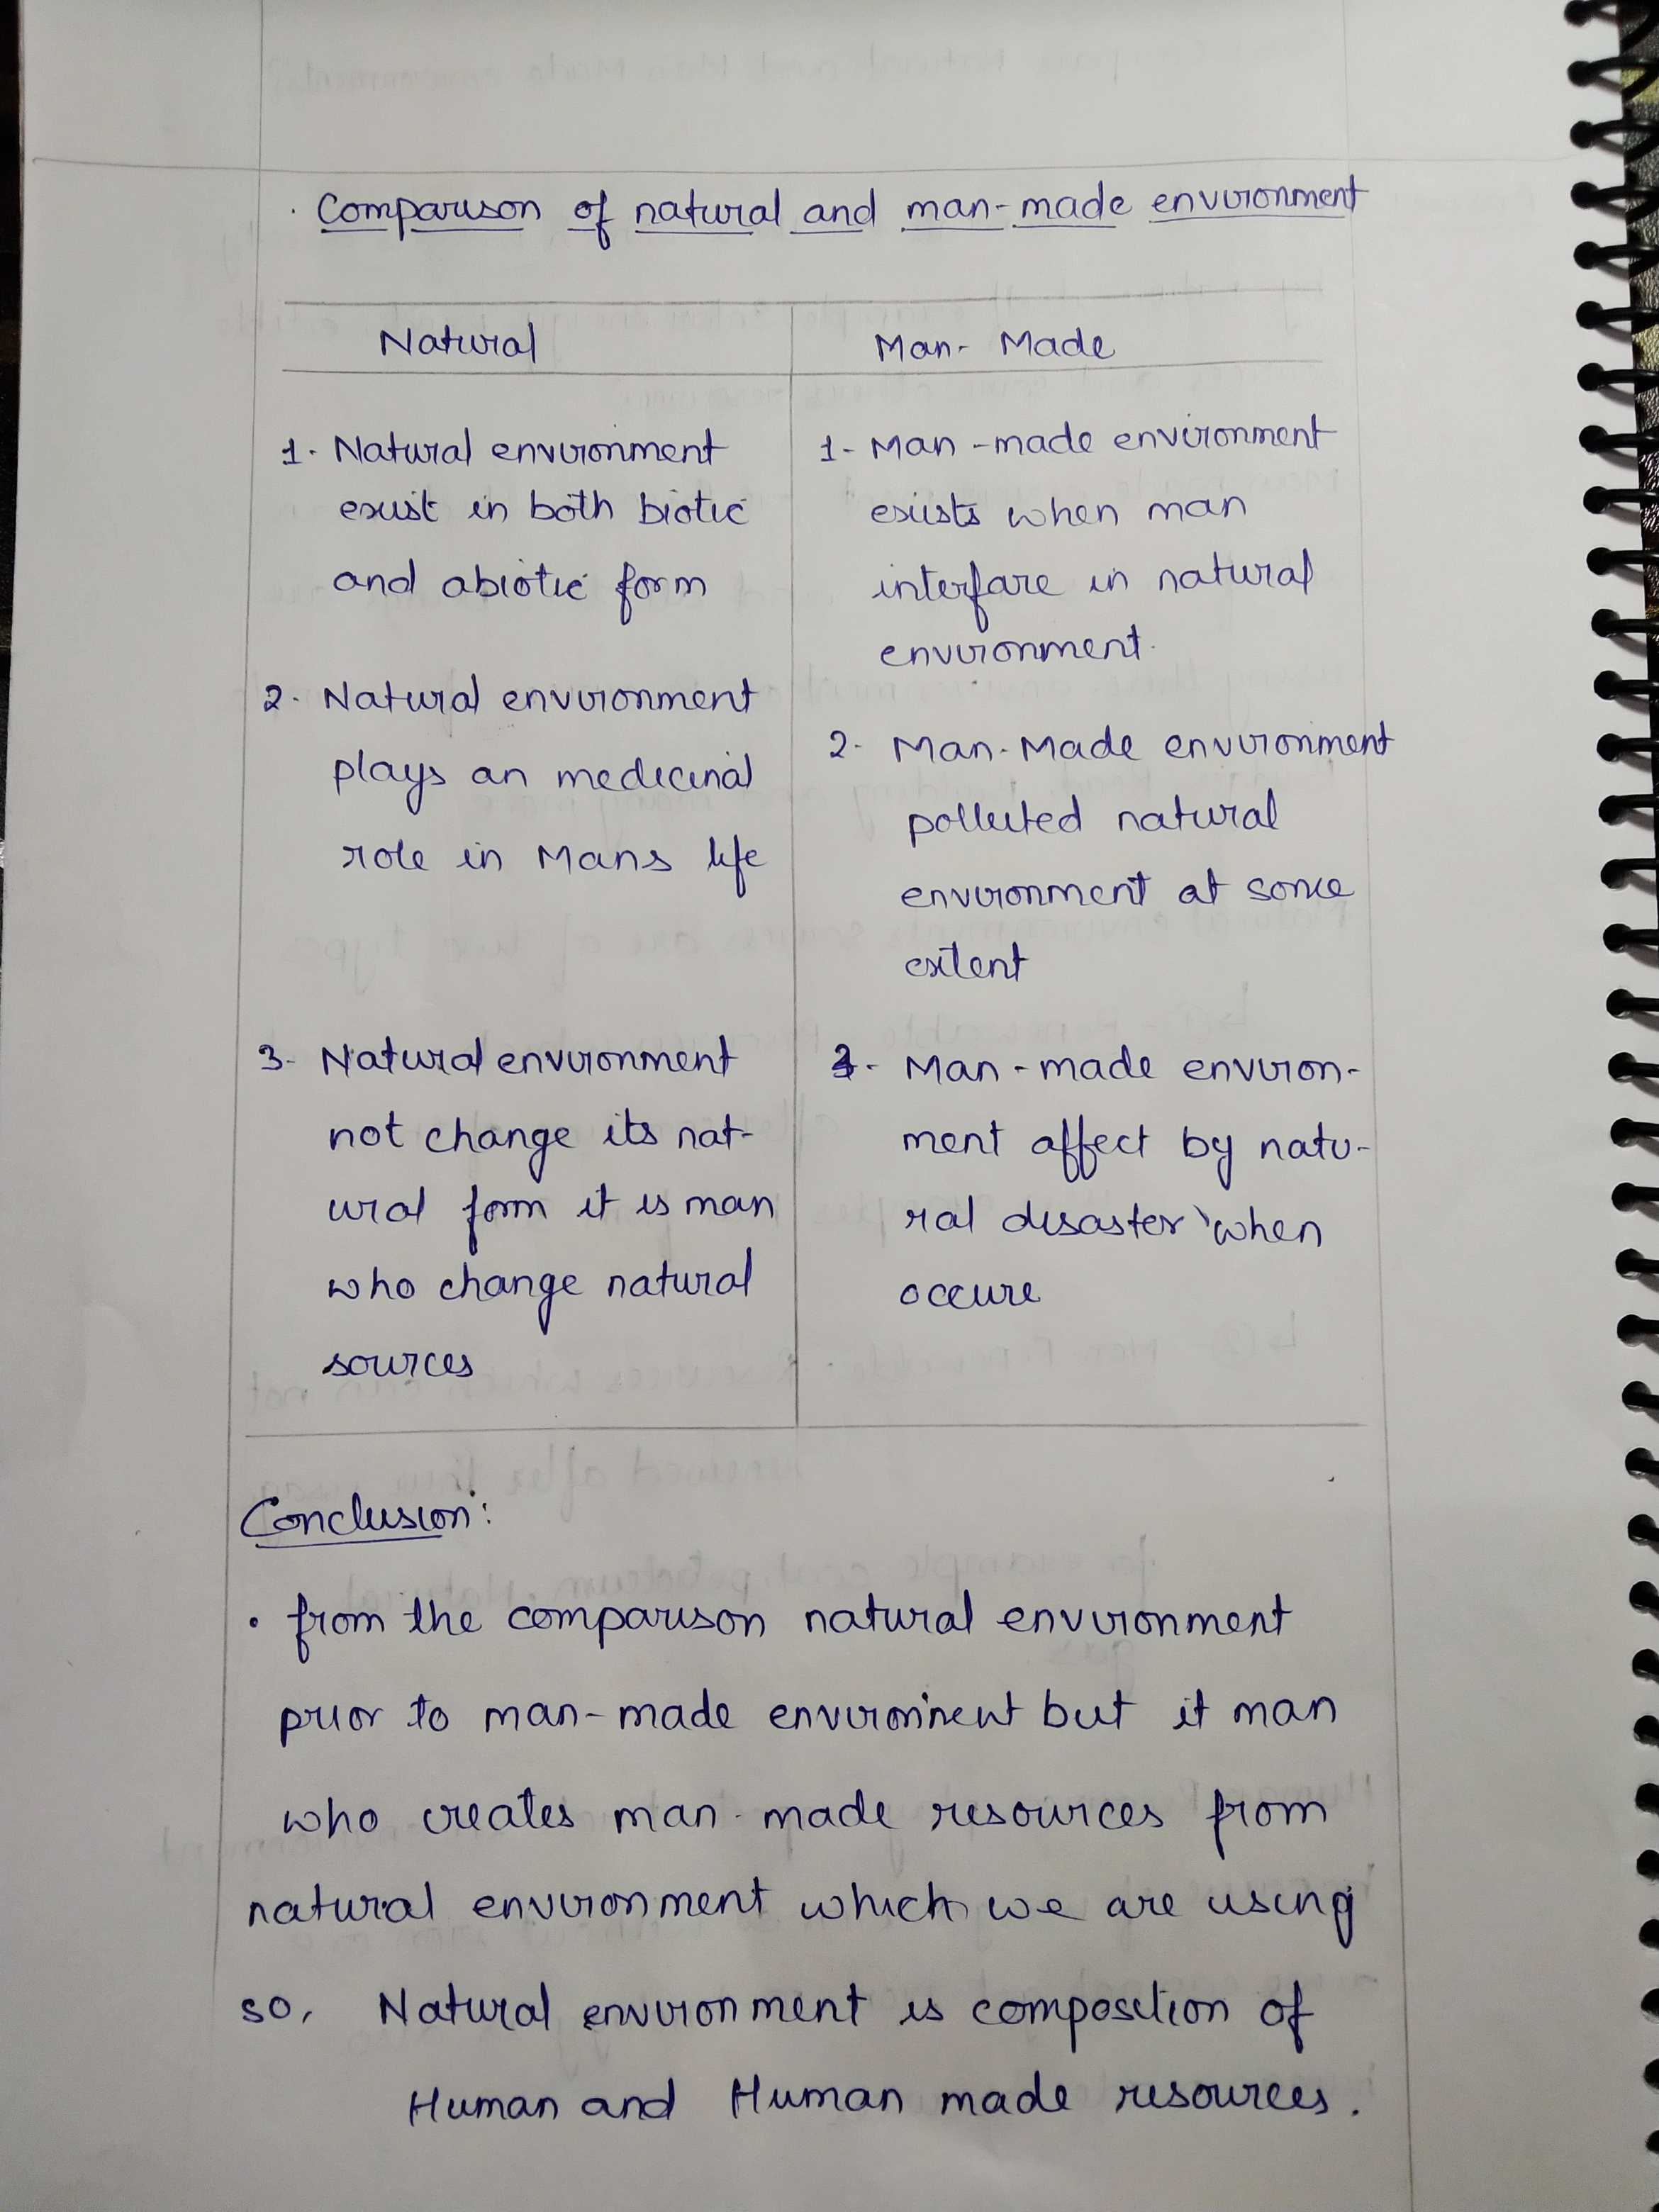 . Comparison of natural and man-made environment
Natural
Man- Made
1. Natural environment
exist in both biotic
and abiotic form
2. Natural environment
plays an medicinal
role in Mans life
3- Natural environment
not change its nat-
ural form it is man
who change natural
sources
1- Man-made environment
exists when man
interfare in natural
environment.
2- Man-Made environment
polluted natural
environment at some
extent
3- Man-made environ-
ment affect by natu-
ral disaster when
occure
Conclusion:
• from the comparison natural environment
prior to man-made environment but it man
who creates man-made resources from
natural environment which we are using
so, Natural environment is composition of
Human and Human made resources.